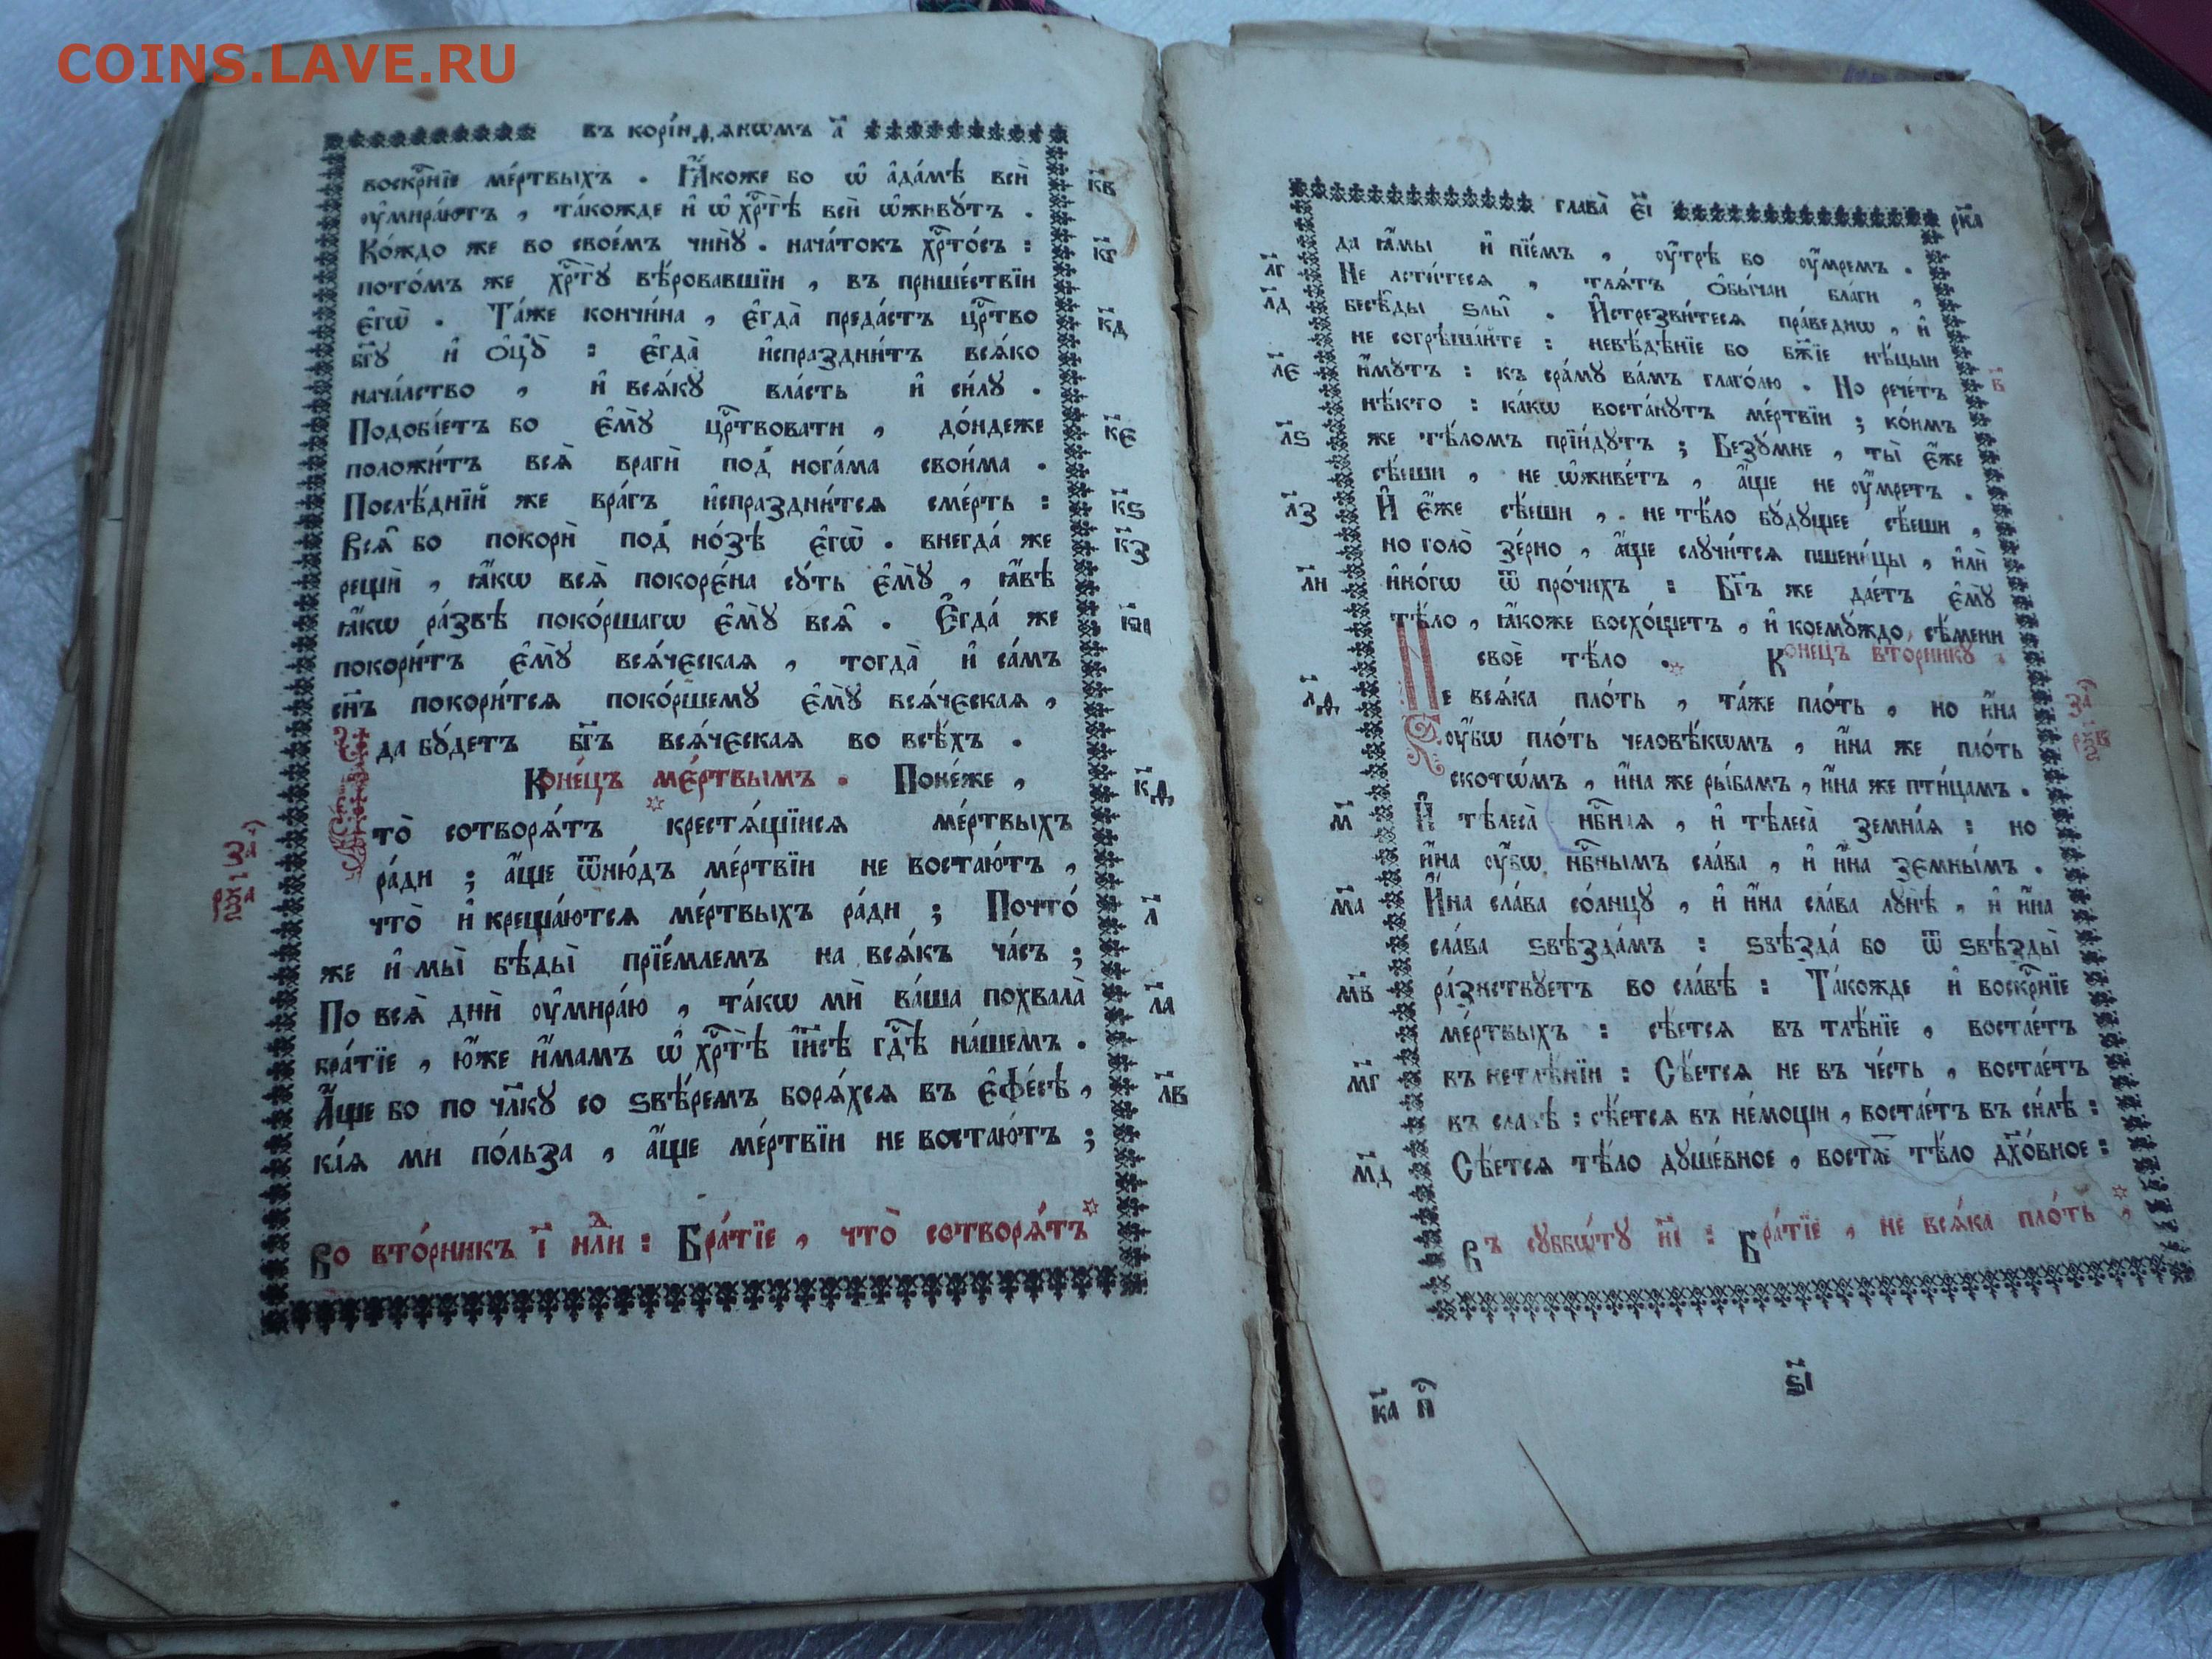 COINS.LAVE.RU
въ корі́нѳѧнѡмъ а҃
воскрⷭ҇нїе ме́ртвыхъ . Ꙗ҆́коже бо ѡ҆ а҆да́мѣ вси̑ к҃в
ᲂу҆мира́ютъ , та́кожде и҆ ѡ҆ хрⷭ҇тѣ̀ вси̑ ѡ҆живꙋ́тъ .
Ко́ждо же во свое́мъ чи́нꙋ . нача́токъ хрⷭ҇то́съ : к҃г
пото́мъ же хрⷭ҇тꙋ̀ вѣ́ровавшїи , въ прише́ствїи
є҆гѡ̀ . Та́же кончи́на , є҆гда̀ преда́стъ црⷭ҇тво к҃д
бг҃ꙋ и҆ ѻ҆ц҃ꙋ̀ : є҆гда̀ и҆спраздни́тъ всѧ́ко
нача́лство , и҆ всѧ́кꙋ вла́сть и҆ си́лꙋ .
Подоба́етъ бо є҆мꙋ̀ црⷭ҇твовати , до́ндеже к҃є
положи́тъ всѧ̀ враги̑ под̾ нога́ма свои́ма .
Послѣ́днїй же вра́гъ и҆спраздни́тсѧ сме́рть : к҃ѕ
Всѧ̑ бо покорѝ под̾ но́зѣ є҆гѡ̀ . внегда́ же к҃з
рещѝ , ꙗ҆́кѡ всѧ̀ покоре́на сꙋ́ть є҆мꙋ̀ , ꙗ҆́вѣ
ꙗ҆́кѡ ра́звѣ поко́ршагѡ є҆мꙋ̀ всѧ̑ . Є҆гда́ же к҃и
покори́тъ є҆мꙋ̀ всѧ́ческаѧ , тогда̀ и҆ са́мъ
сн҃ъ покори́тсѧ поко́ршемꙋ є҆мꙋ̀ всѧ́ческаѧ ,
да бꙋ́детъ бг҃ъ всѧ́ческаѧ во всѣ́хъ .
Коне́цъ ме́ртвымъ . Поне́же , к҃ѳ
что̀ сотворѧ́тъ крестѧ́щїисѧ ме́ртвыхъ
ра́ди ; а҆́ще ѿню́дъ ме́ртвїи не востаю́тъ ,
что̀ и҆ креща́ютсѧ ме́ртвыхъ ра́ди ; Почто́ л҃
же и҆ мы̀ бѣды̀ прїе́млемъ на всѧ́къ ча́съ ;
По всѧ̀ дни̑ ᲂу҆мира́ю , та́кѡ ми̑ ва́ша похвала̀ л҃а
бра́тїе , ю҆́же и҆́мамъ ѡ҆ хрⷭ҇тѣ̀ і҆и҃сѣ гдⷭ҇ѣ на́шемъ .
А҆́ще бо по чл҃кꙋ со ѕвѣ́ремъ борѧ́хсѧ въ є҆фе́сѣ , л҃в
ка́ѧ ми по́льза , а҆́ще ме́ртвїи не востаю́тъ ;
Во вто́рникъ і҃ нⷣли : Бра́тїе , что̀ сотворѧ́тъ
глава̀ є҃і рк҃а
да ꙗ҆́мы и҆ пїе́мъ , ᲂу҆́трѣ бо ᲂу҆́мремъ .
Не льсти́тесѧ , тлѧ́тъ ѻ҆бы́чаи бла́ги , л҃г
бесѣ́ды ѕлы̑ . И҆стрезви́тесѧ пра́веднѡ , и҆ л҃д
не согрѣша́йте : невѣ́дѣнїе бо бж҃їе нѣ́цыи
и҆́мꙋтъ : къ сра́мꙋ ва́мъ глаго́лю . Но рече́тъ л҃є
нѣ́кто : ка́кѡ воста́нꙋтъ ме́ртвїи ; ко́имъ
же тѣ́ломъ прїи́дꙋтъ ; Безꙋ́мне , ты̀ є҆́же л҃ѕ
сѣ́еши , не ѡ҆живе́тъ , а҆́ще не ᲂу҆́мретъ .
И҆ є҆́же сѣ́еши , не тѣ́ло бꙋ́дꙋщее сѣ́еши , л҃з
но голо̀ зе́рно , а҆́ще слꙋчи́тсѧ пшени́цы , и҆лѝ
и҆но́гѡ ѿ про́чихъ : Бг҃ъ же дае́тъ є҆мꙋ̀ л҃и
тѣ́ло , ꙗ҆́коже восхо́щетъ , и҆ коемꙋ́ждо сѣ́мени
своѐ тѣ́ло . Коне́цъ вто́рникꙋ .
Не всѧ́ка пло́ть , та́же пло́ть , но и҆́на л҃ѳ
ᲂу҆́бѡ пло́ть человѣ́кѡмъ , и҆́на же пло́ть
скотѡ́мъ , и҆́на же ры́бамъ , и҆́на же пти́цамъ .
И҆ тѣлеса̀ нбⷭ҇наѧ , и҆ тѣлеса̀ земна́ѧ : но м҃
и҆́на ᲂу҆́бѡ нбⷭ҇нымъ сла́ва , и҆ и҆́на земны́мъ .
И҆́на сла́ва со́лнцꙋ , и҆ и҆́на сла́ва лꙋнѣ̀ , и҆ и҆́на м҃а
сла́ва ѕвѣзда́мъ : ѕвѣзда́ бо ѿ ѕвѣзды̀
ра́знствꙋетъ во сла́вѣ : Та́кожде и҆ воскрⷭ҇нїе м҃в
ме́ртвыхъ : сѣ́етсѧ въ тлѣ́нїе , востае́тъ
въ нетлѣ́нїи : Сѣ́етсѧ не въ че́сть , востае́тъ м҃г
въ сла́вѣ : сѣ́етсѧ въ не́мощи , востае́тъ въ си́лѣ :
Сѣ́етсѧ тѣ́ло дꙋше́вное , востае́тъ тѣ́ло дх҃о́вное : м҃д
Въ сꙋббѡ́тꙋ и҃і : Бра́тїе , не всѧ́ка пло́ть ,
к҃а п҃
ѕ҃і